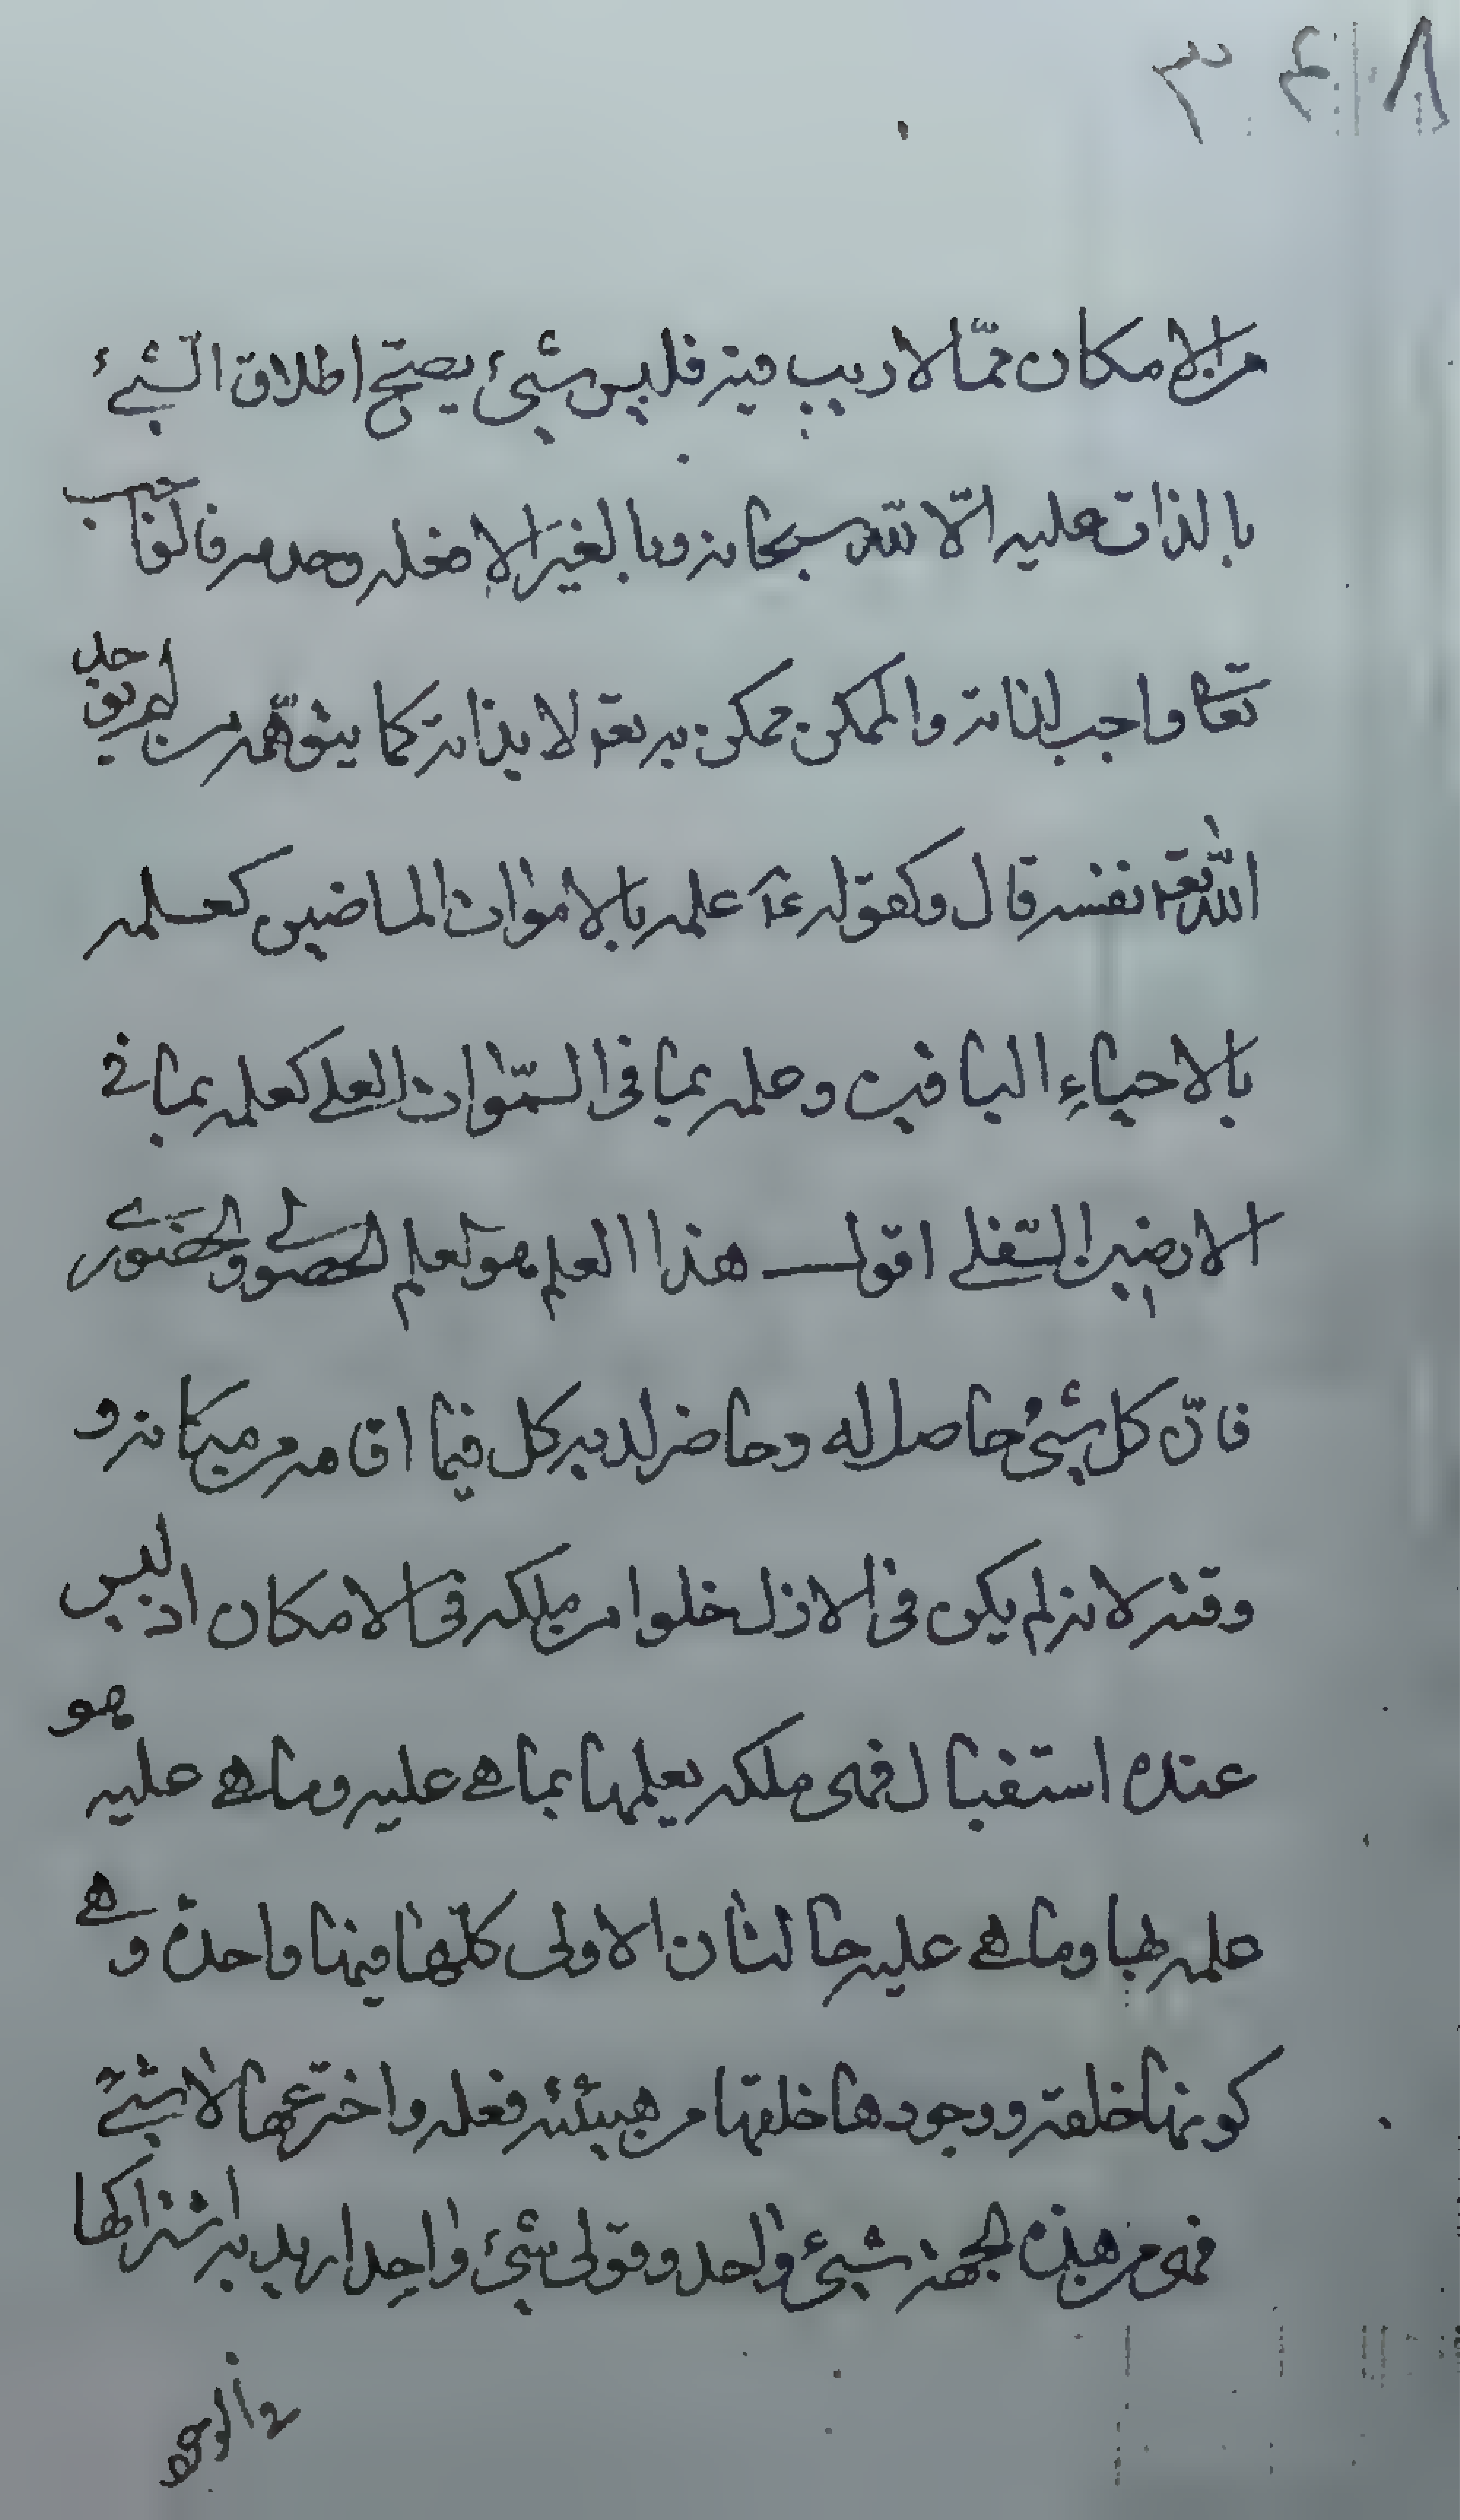 ٨ ٤ ٣
من الامكان ممّا لا ريب فيه فليس شيئ يصحّ اطلاق الشّيئ
بالذات عليه الّا لله سبحانه وبالغير الا فعله وحده فالواجب
تعا واجب لذاته والممكن ممكن به تعه لا بذاته كما يتوهّمه من لم يوحد
الله تعه نفسه قال وكقوله ع علمه بالاموات الماضين كعلمه
بالاحياء الباقين وعلمه بما فى السّموات العلى كعلمه بما فى
الارضين السّفلى اقول هذا العلم هو العلم الحصولى والحضورى
فانّ كل شيئ حاصل له وحاضر لديه كل فيما اقامه من مكانه و
وقته لانه لم يكن فى الازل خلوا من ملكه فى الامكان اذ ليس
عنده استقبال فهى ملكه يعلمها بما هى عليه وما هى عليه هو
علمه بها وما هى عليه حالتان الاولى كلّها فيها واحدة وهى
كونها خلقه ووجودها خلقها من هيئة فعله واخترعها لا من شيئ
فهى من هذه الجهة شيئ واحد وقولى شيئ واحد اريد به اشتراكها